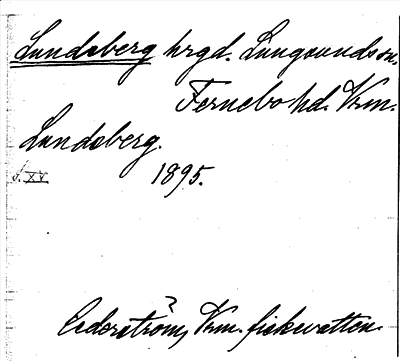 Lundsberg hrgd. Lungsunds sn.
Fernebo hd. Vrm.
Lundsberg.
s. XV 1895.
Cederström, Vrm. fiskvatten.